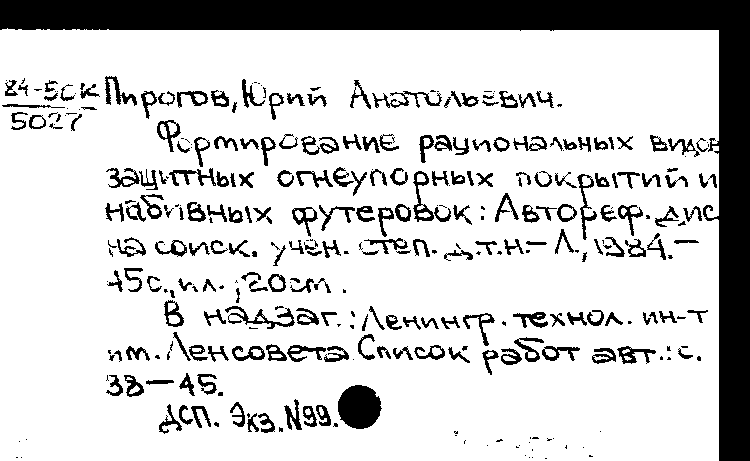 84-5СК Пирогов, Юрий Анатольевич.
5027
Формирование рациональных видов
защитных огнеупорных покрытий и
набивных футеровок: Автореф. дис
на соиск. учен. степ. д.т.н.- Л., 1984.-
45с., ил.; 20см.
В надзаг.: Ленингр. технол. ин-т
им. Ленсовета. Список работ авт.: с.
38-45.
ДСП. Экз. N99.